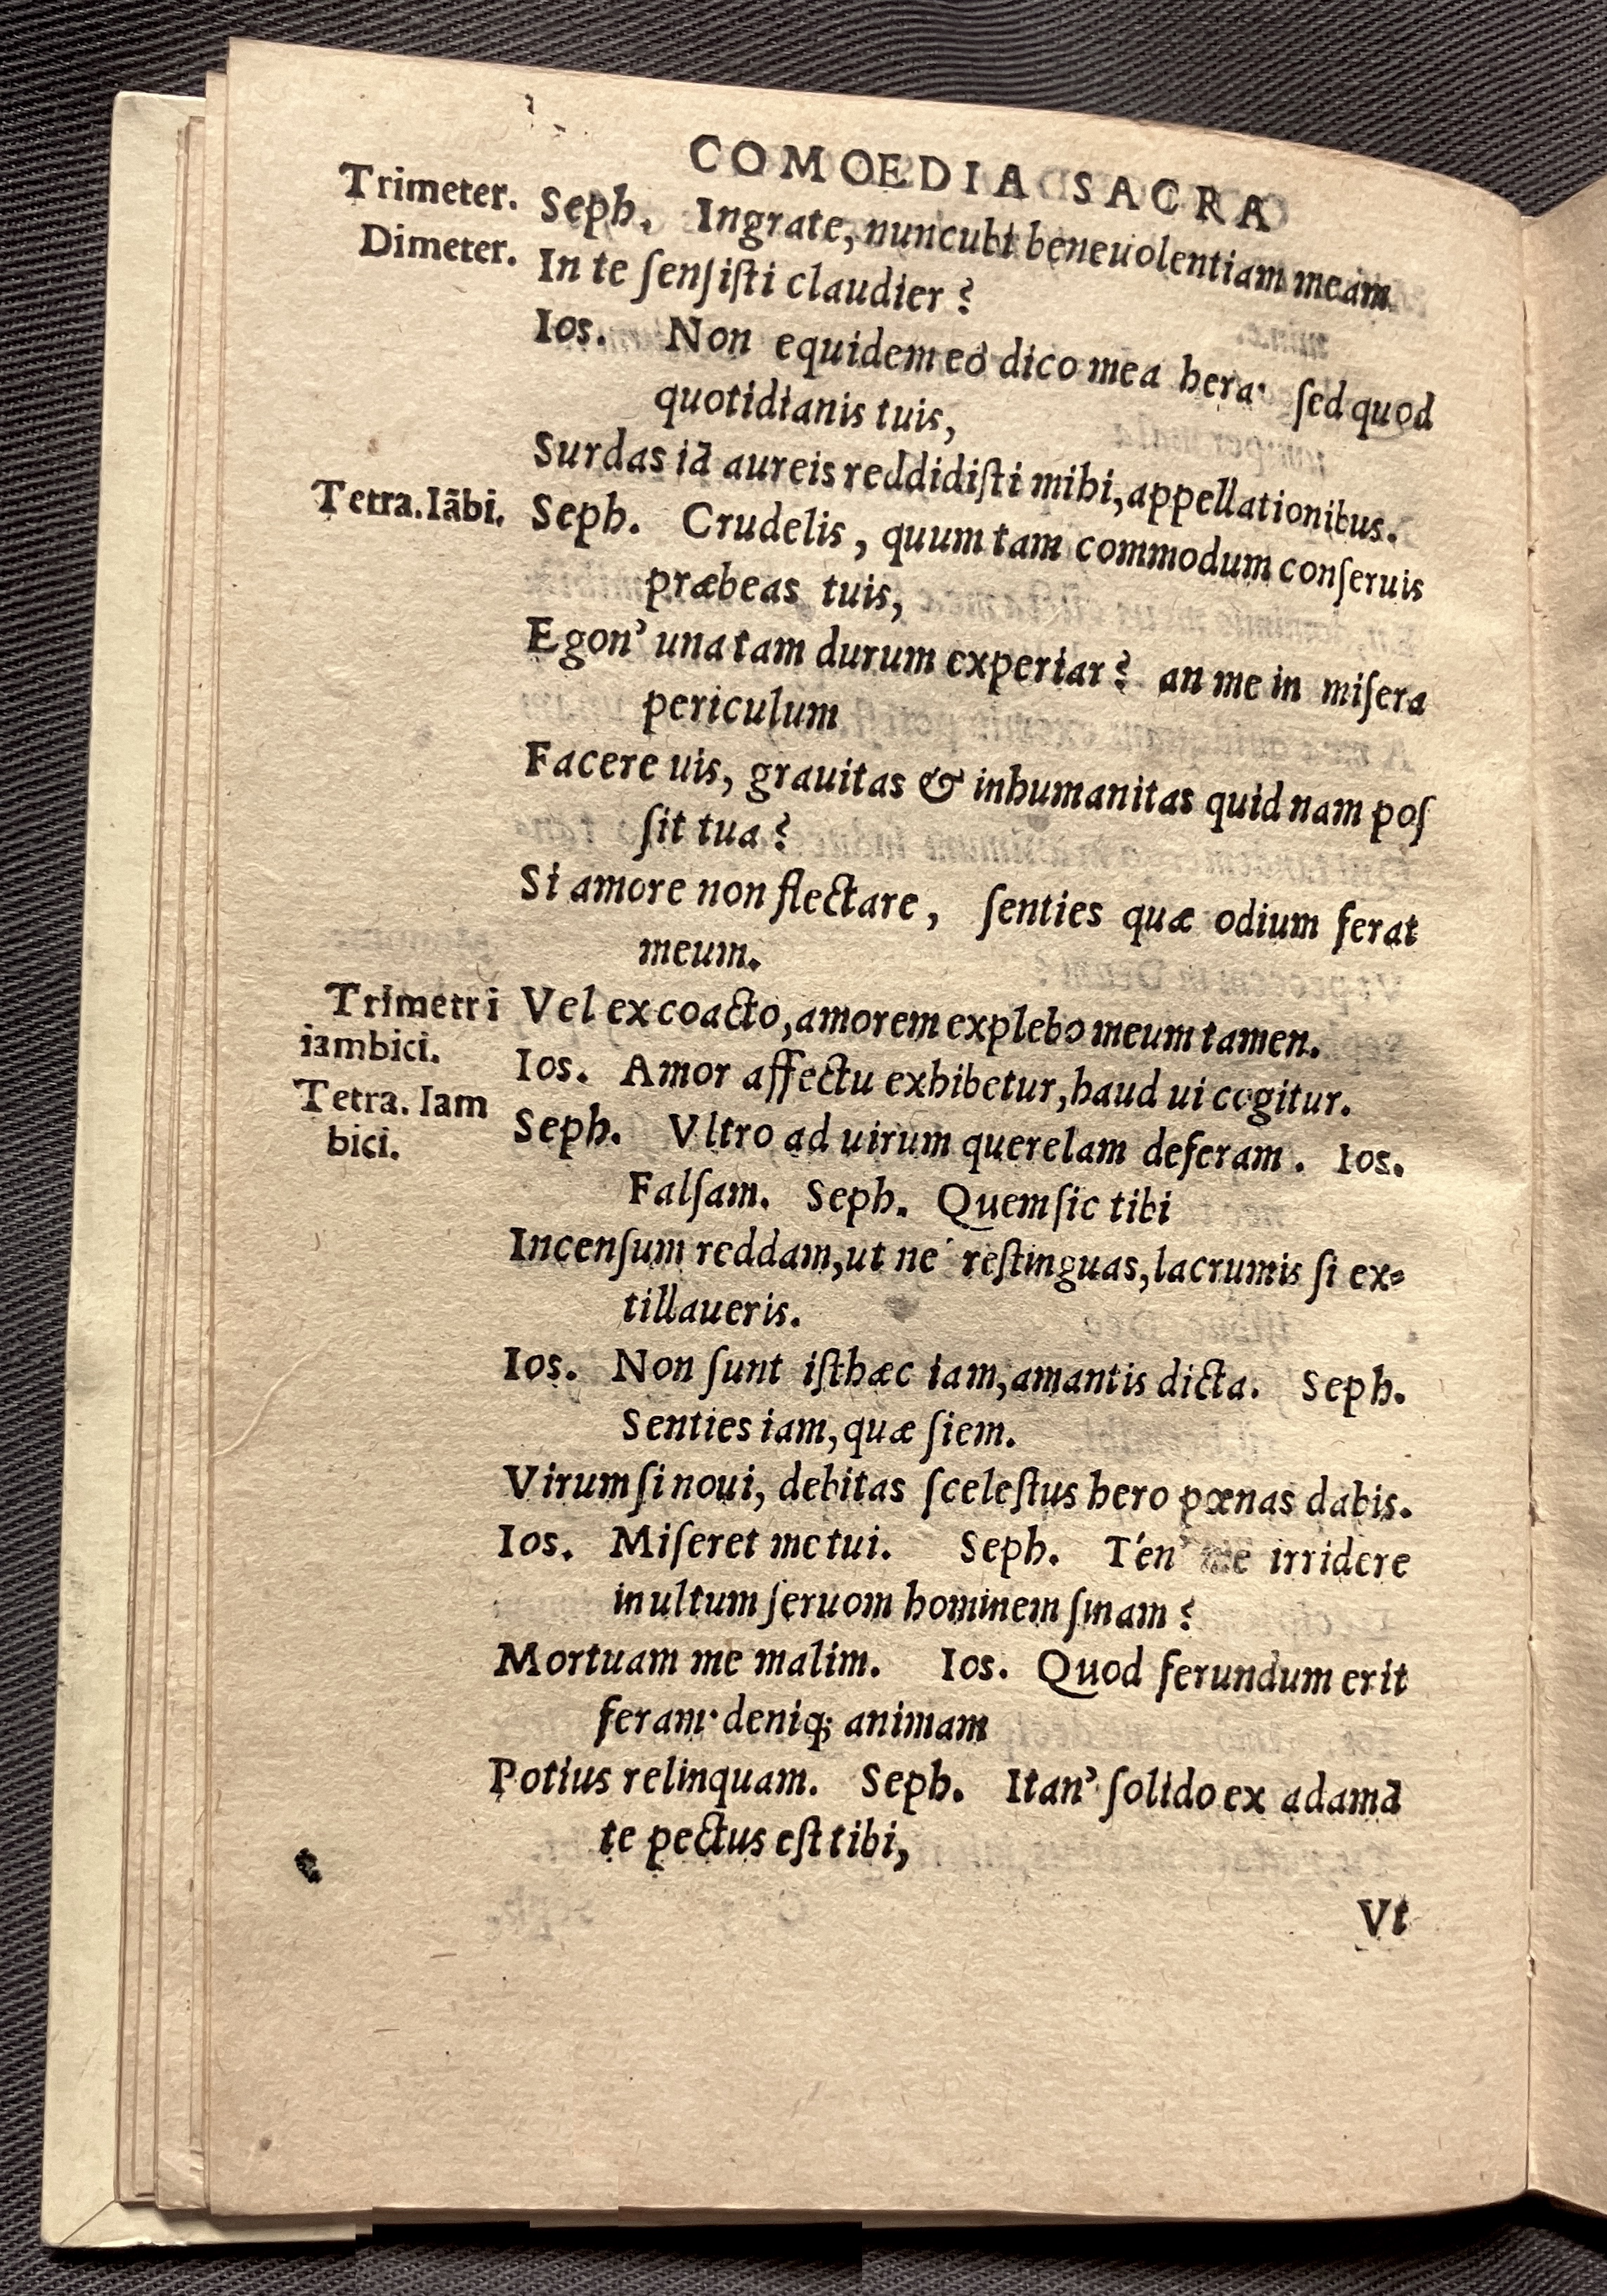 COMOEDIA SACRA
Trimeter. Seph. Ingrate, nuncubi beneuolentiam meam
Dimeter. In te ſenſiſti claudier?
Ios. Non equidem eò dico mea hera· ſed quod
quotidianis tuis,
Surdas iā aureis reddidiſti mihi, appellationibus.
Tetra. Iābi. Seph. Crudelis, quum tam commodum conſeruis
præbeas tuis,
Egon' una tam durum experiar? an me in miſera
periculum
Facere uis, grauitas & inhumanitas quid nam poſ
ſit tua?
Si amore non flectare, ſenties quæ odium ferat
meum.
Trimetri Vel ex coacto, amorem explebo meum tamen.
iambici.
Ios. Amor affectu exhibetur, haud ui cogitur.
Tetra. Iam
bici.
Seph. Vltro ad uirum querelam deferam. Ios.
Falſam. Seph. Quem ſic tibi
Incenſum reddam, ut ne' reſtinguas, lacrumis ſi ex-
tillaueris.
Ios. Non ſunt iſthæc iam, amantis dicta. Seph.
Senties iam, quæ ſiem.
Virum ſi noui, debitas ſceleſtus hero pœnas dabis.
Ios. Miſeret me tui. Seph. Tén' me irridere
inultum ſeruom hominem ſinam?
Mortuam me malim. Ios. Quod ferundum erit
feram· deniq; animam
Potius relinquam. Seph. Itan' ſolido ex adamā
te pectus eſt tibi,
Vt